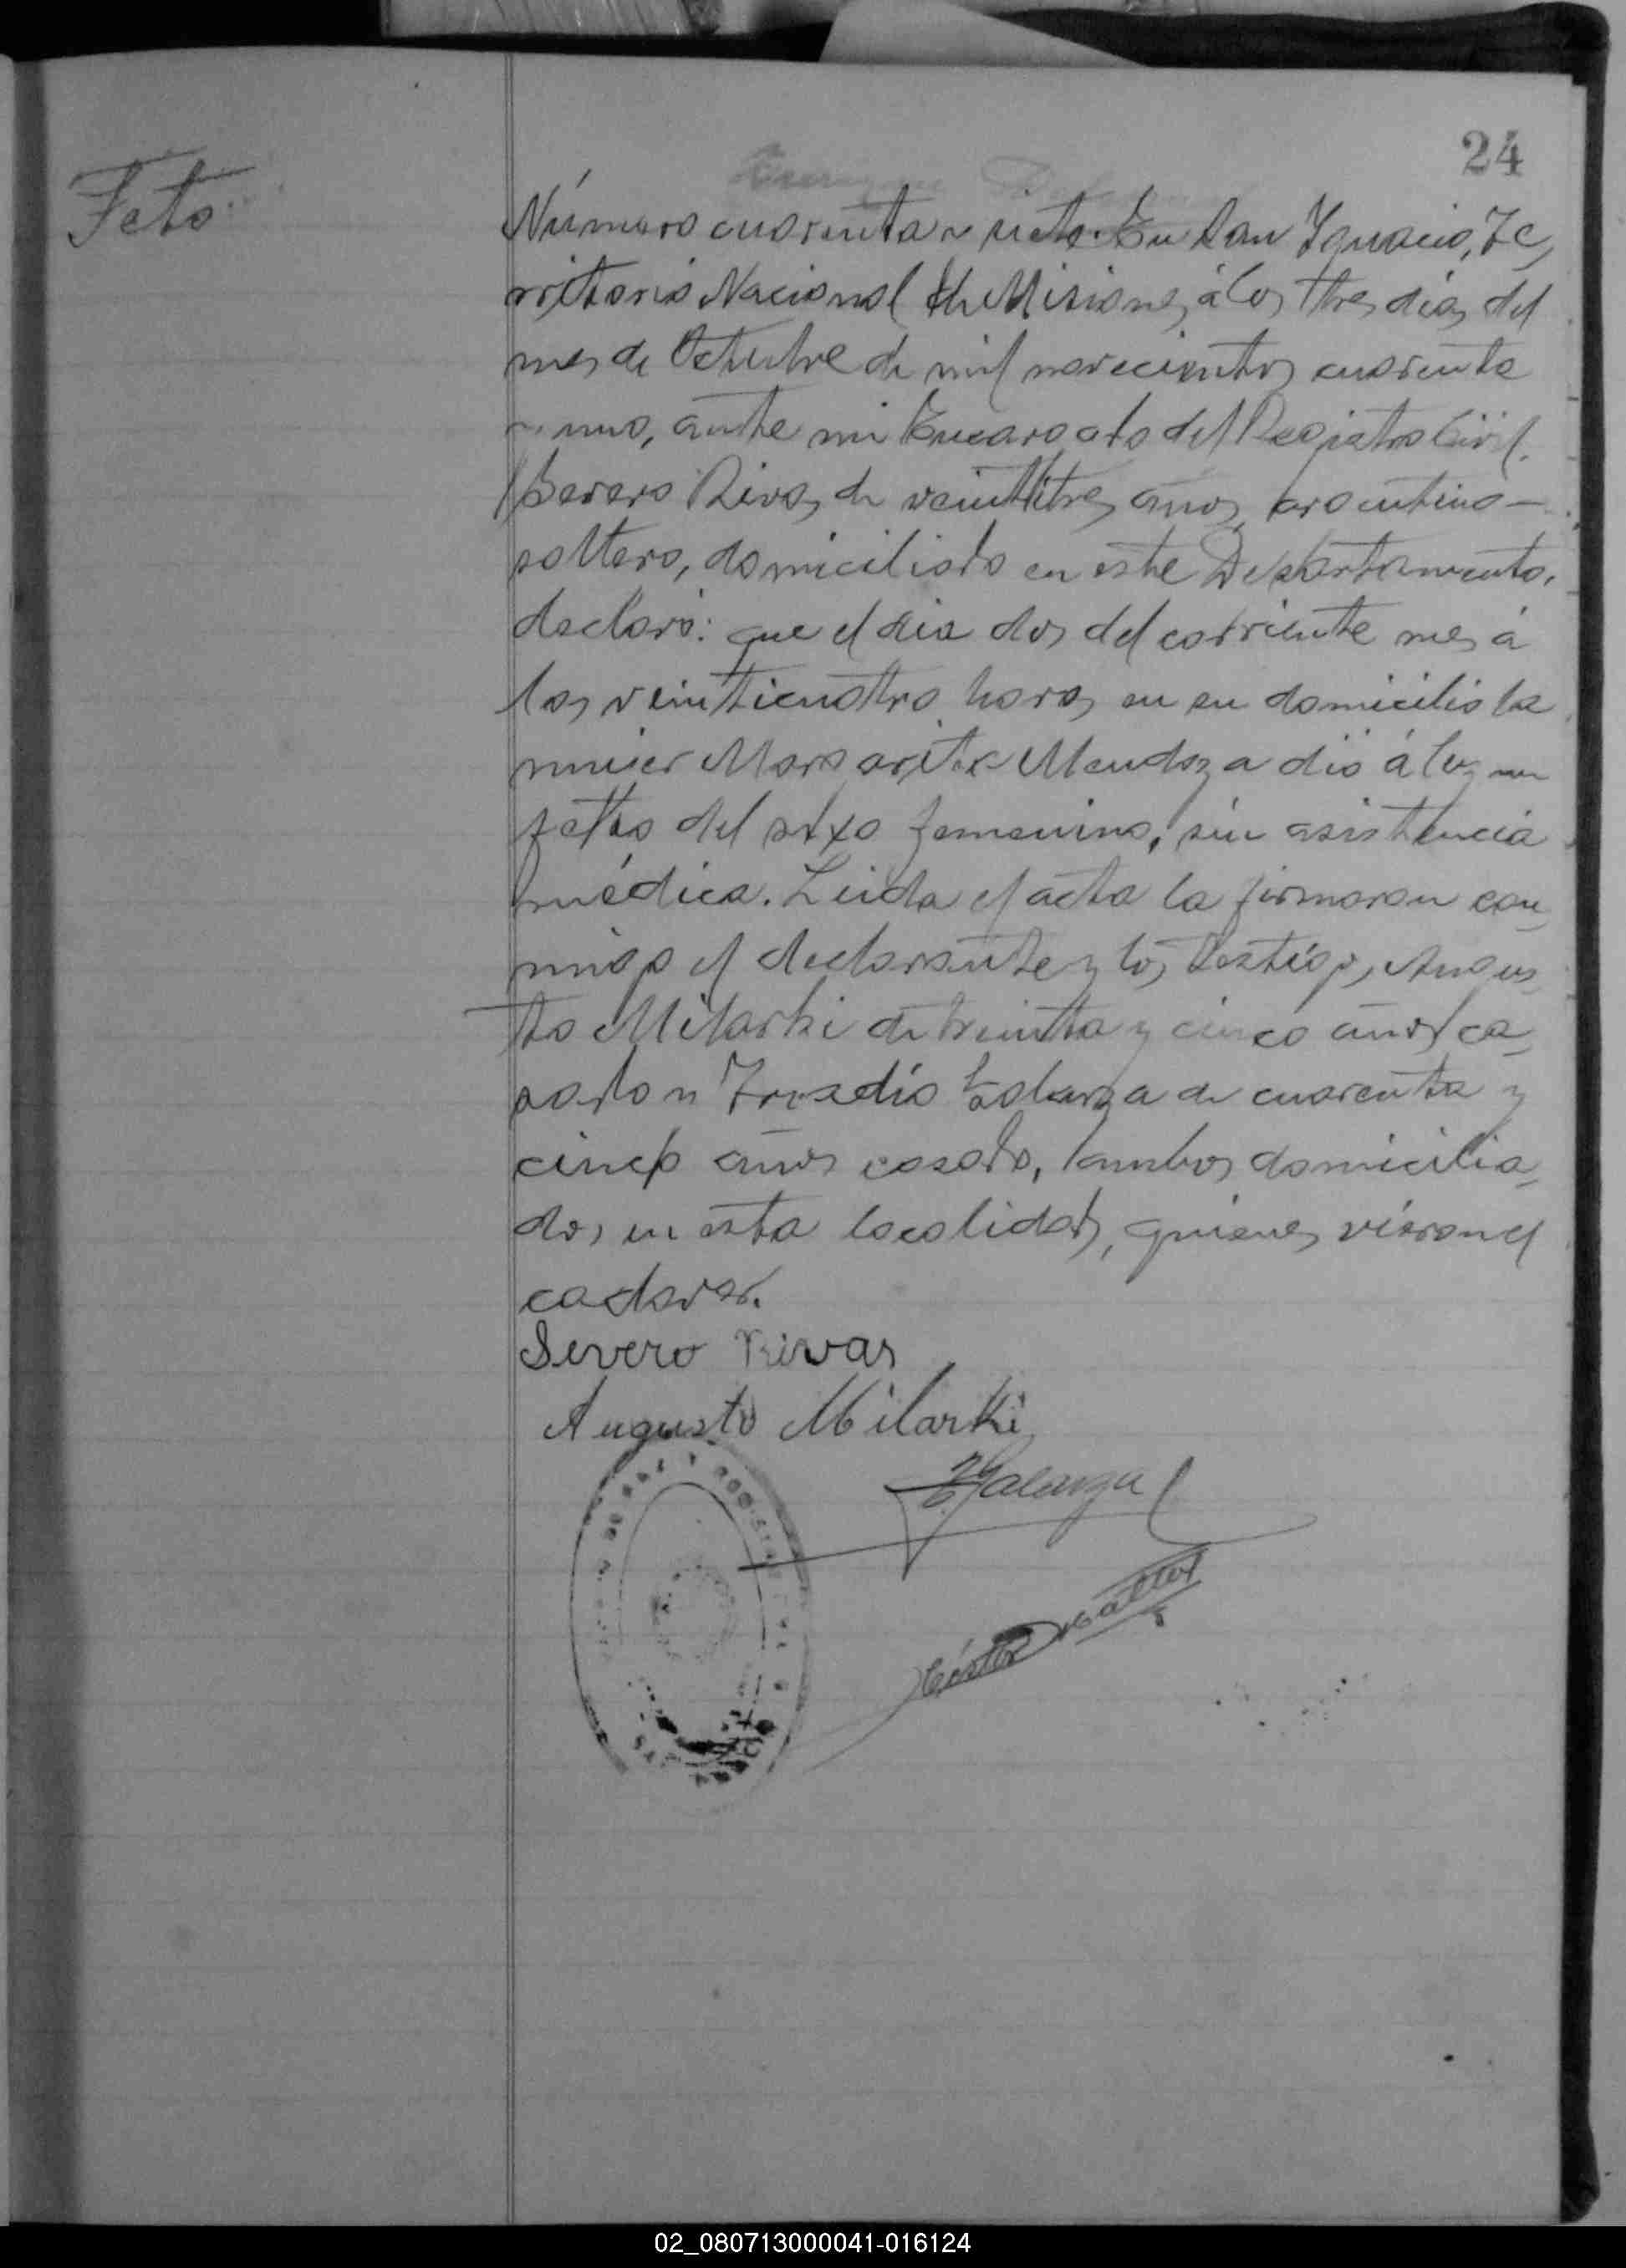 24
Feto
Número cuarenta y siete. En San Ignacio, Te,
rritorio Nacional de Misiones, á los tres días del
mes de Octubre de mil novecientos cuarenta
y uno, ante mi Encargado del Registro Civil.
Severo Rivas, de veintitres años, argentino —
soltero, domiciliado en este Departamento,
declaró: que el dia dos del corriente mes á
las veinticuatro horas en su domicilio la
mujer Margarita Mendoza dió á luz un
feto del sexo femenino, sin asistencia
médica. Leida el acta la firmaron con,
migo el declarante y los testigos, Augus,
to Milarki de treinta y cinco años ca,
sado y Galarza de cuarenta y
cinco años casado, ambos domicilia,
dos en esta localidad, quienes vieron el
cadaver.
Severo Rivas
Augusto Milarki
Galarza
02_080713000041-016124